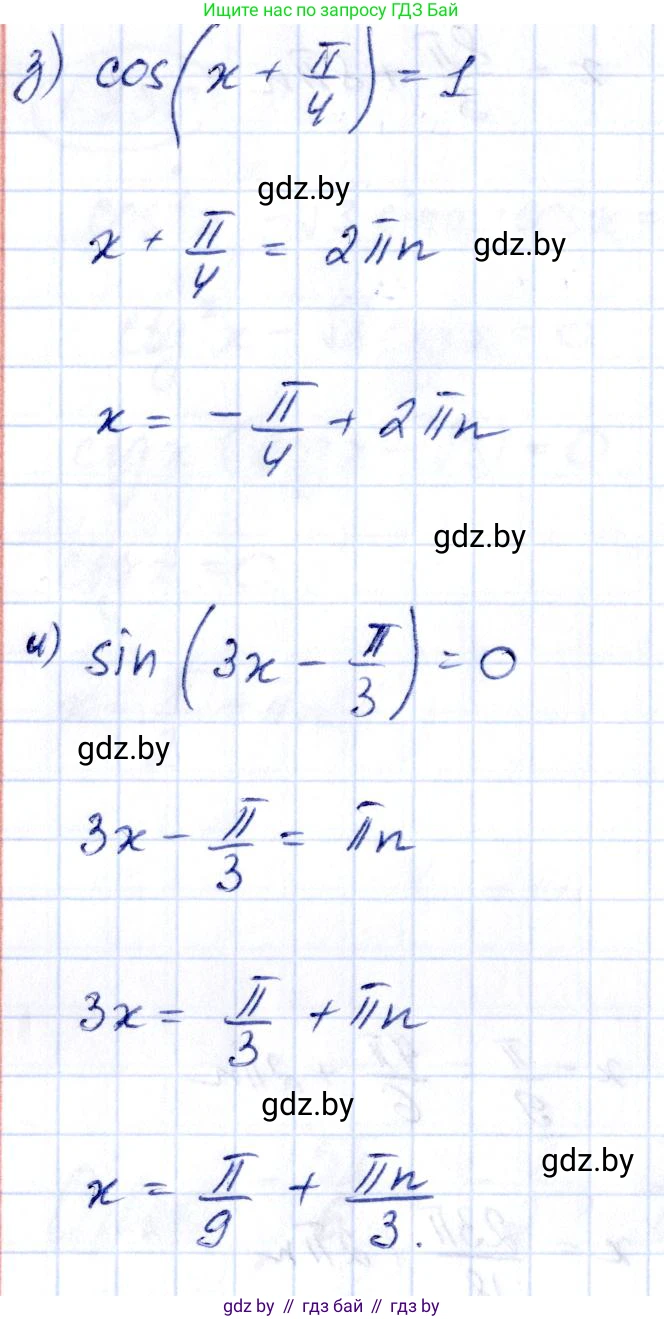 Ищите нас по запросу ГДЗ Бай
з) cos(x + π/4) = 1
gdz.by
x + π/4 = 2πn gdz.by
x = -π/4 + 2πn
gdz.by
и) sin(3x - π/3) = 0
gdz.by
3x - π/3 = πn
3x = π/3 + πn
gdz.by
gdz.by
x = π/9 + πn/3.
gdz.by // гдз бай // гдз by